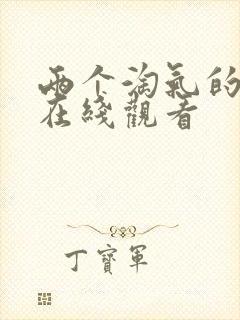 两个淘氣的
在綫觀看
丁寶軍